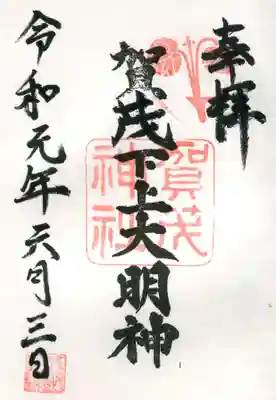 奉拝
賀茂下上大明神
賀茂神社
令和元年六月三日